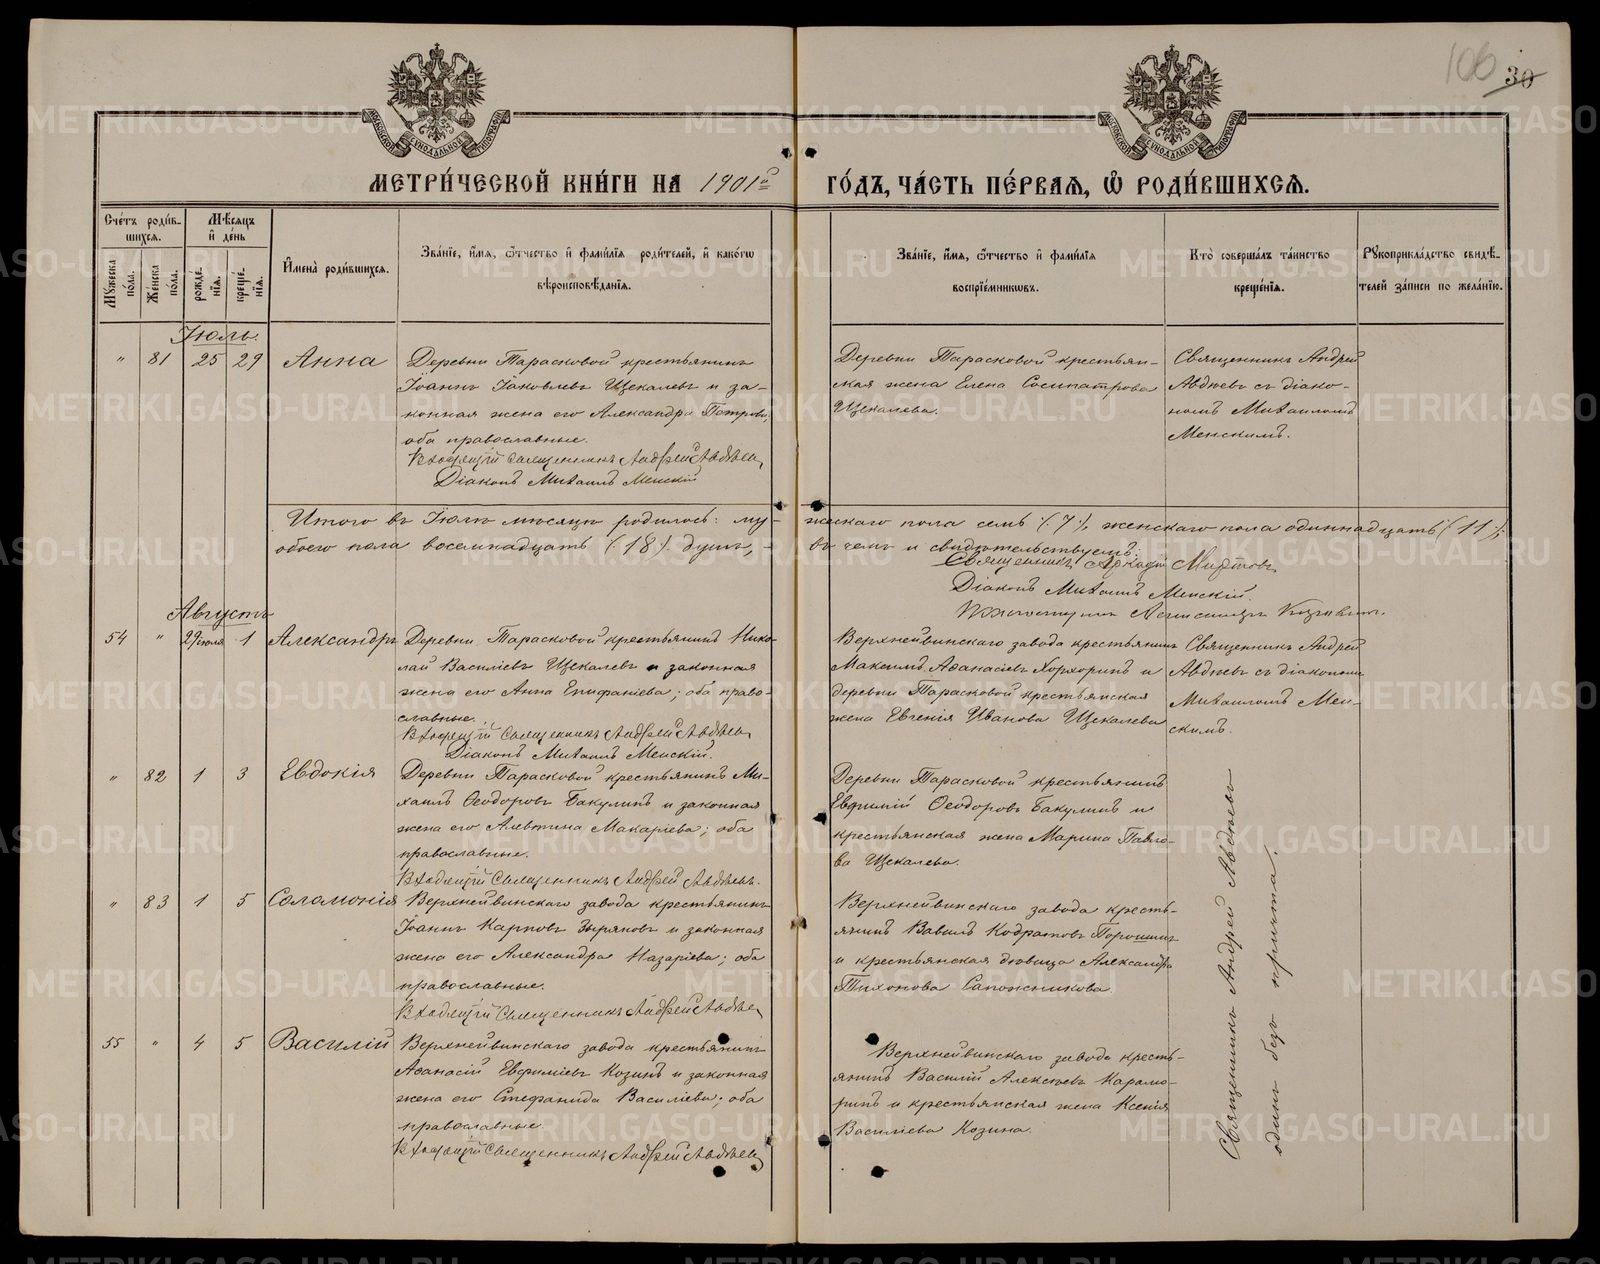 106 30
МЕТРИ́ЧЕСКОЙ КНИ́ГИ НА 1901й ГО́ДЪ, ЧА́СТЬ ПЕ́РВАѦ, Ѿ РОДИ́ВШИХСѦ.
Сче́тъ роди́в-
шихсѧ.
Мѣ́сѧцъ
и҆ де́нь
Мꙋ́жеска по́ла.
Же́нска по́ла.
рожде́нїѧ.
креще́нїѧ.
И҆мена̀ роди́вшихсѧ.
Зва́нїе, и҆́мѧ, ѻ҆́тчество и҆ фами́лїѧ роди́телей, и҆ како́гѡ
вѣроисповѣ́данїѧ.
Зва́нїе, и҆́мѧ, ѻ҆́тчество и҆ фами́лїѧ
воспрїе́мникѡвъ.
Кто̀ соверша́лъ та́инство
креще́нїѧ.
Рꙋкоприкла́дство свидѣ́-
телей за́писи по жела́нїю.
Іюль.
" 81 25 29 Анна
Деревни Тарасковой крестьянинъ
Іоаннъ Іаковлевъ Щекалевъ и за-
конная жена его Александра Петрова,
оба православные.
Входящій священникъ Андрей Авдѣевъ
Діаконъ Михаилъ Менскій
Деревни Тарасковой крестьян-
ская жена Елена Сосипатрова
Щекалева.
Священникъ Андрей
Авдѣевъ съ діако-
номъ Михаиломъ
Менскимъ.
Итого въ Іюлѣ мѣсяцѣ родилось: му- жескаго пола семь (7), женскаго пола одиннадцать (11),
обоего пола восемнадцать (18) душъ, - въ чемъ и свидѣтельствуемъ:
Священникъ Аркадій
Діаконъ Михаилъ Менскій.
Августъ
54 " 29 іюля 1 Александръ
Деревни Тарасковой крестьянинъ Нико-
лай Василіевъ Щекалевъ и законная
жена его Анна Епифаніева; оба право-
славные.
Входящій Священникъ Андрей Авдѣевъ
Діаконъ Михаилъ Менскій.
Верхнейвинскаго завода крестьянинъ
Максимъ Аѳанасіевъ Хорхоринъ и
деревни Тарасковой крестьянская
жена Евгенія Иванова Щекалева
Священникъ Андрей
Авдѣевъ съ діакономъ
Михаиломъ Мен-
скимъ.
" 82 1 3 Евдокія
Деревни Тарасковой крестьянинъ Ми-
хаилъ Ѳеодоровъ Бакулинъ и законная
жена его Алевтина Макаріева; оба
православные.
Входящій Священникъ Андрей Авдѣевъ.
Деревни Тарасковой крестьянинъ
Евфимій Ѳеодоровъ Бакулинъ и
крестьянская жена Марина Павло-
ва Щекалева.
" 83 1 5 Саламонія
Верхнейвинскаго завода крестьянинъ
Іоаннъ Карповъ Зыряновъ и законная
жена его Александра Назаріева; оба
православные.
Входящій Священникъ Андрей Авдѣевъ
Верхнейвинскаго завода кресть-
янинъ Вавилъ Кодратовъ Порошинъ
и крестьянская дѣвица Александра
Тихонова Сапожникова.
55 " 4 5 Василій
Верхнейвинскаго завода крестьянинъ
Аѳанасій Евфиміевъ Козинъ и законная
жена его Стефанида Василіева; оба
православные.
Входящій Священникъ Андрей Авдѣевъ
Верхнейвинскаго завода кресть-
янинъ Василій Алексѣевъ Карамо-
ринъ и крестьянская жена Ксенія
Василіева Козина.
Священникъ Андрей Авдѣевъ
одинъ безъ причта.
METRIKI.GASO-URAL.RU